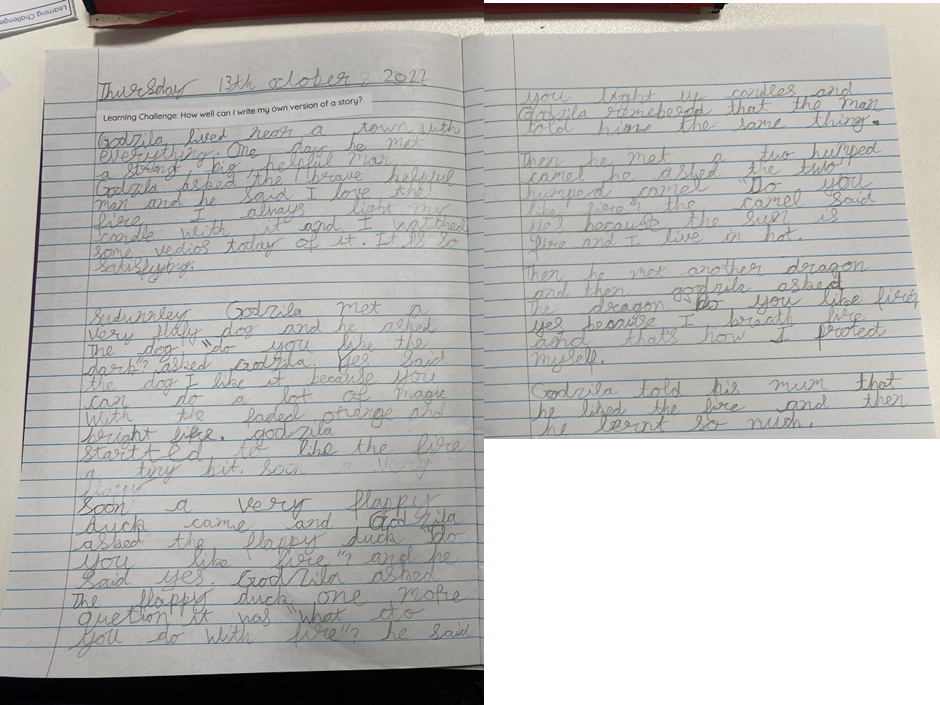 Learning Challenge
Thursday 13th october 2022
Learning Challenge: How well can I write my own version of a story?
Godzila lived near a town with
everything. One day he met
a strong, big, helpful man.
Godzila asked the brave helpful
man and he said I love the
fire I always light my
candle with it and I watched
some vedios today of it. It is so
satisfybg.
Sudunnley Godzila met a
very fluly dog and he asked
The dog "do you like the
dark"? asked Godzila. Yes said
the dog I like it because you
can do a lot of magic
with the faded orange and
bright fire. godzila
startted to like the fire
a tiny bit. Soon a very
flappy
Soon a very flappy
duck came and Godzila
asked the flappy duck "Do
you like fire"? and he
said yes. Godzila asked
The flappy duck one more
quetion it was "what do
you do with fire"? he said
you light up candles and
Godzila remebered that the man
told him the same thing.
Then he met a two humped
camel he asked the two
humped camel "Do you
like fire" the camel said
yes because the sun is
fire and I live in hot.
Then he met another dragon
and then godzila asked
the dragon Do you like fire,
yes because I breath fire
and thats how I protect
myself.
Godzila told his mum that
he liked the fire and then
he lernt so much.